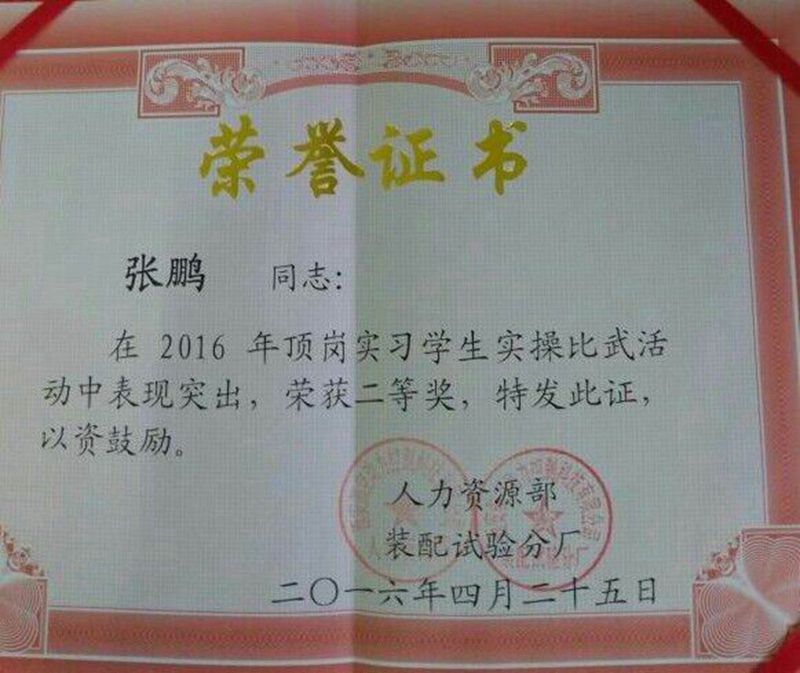 荣誉证书
张鹏 同志：
在 2016 年顶岗实习学生实操比武活
动中表现突出，荣获二等奖，特发此证，
以资鼓励。
人力资源部
装配试验分厂
二〇一六年四月二十五日